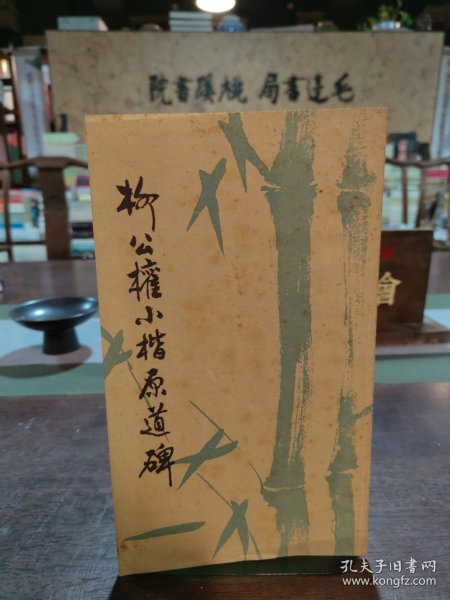 毛邊書局 桃蹊書院
柳公權小楷原道碑
會
孔夫子旧书网
www.kongfz.com